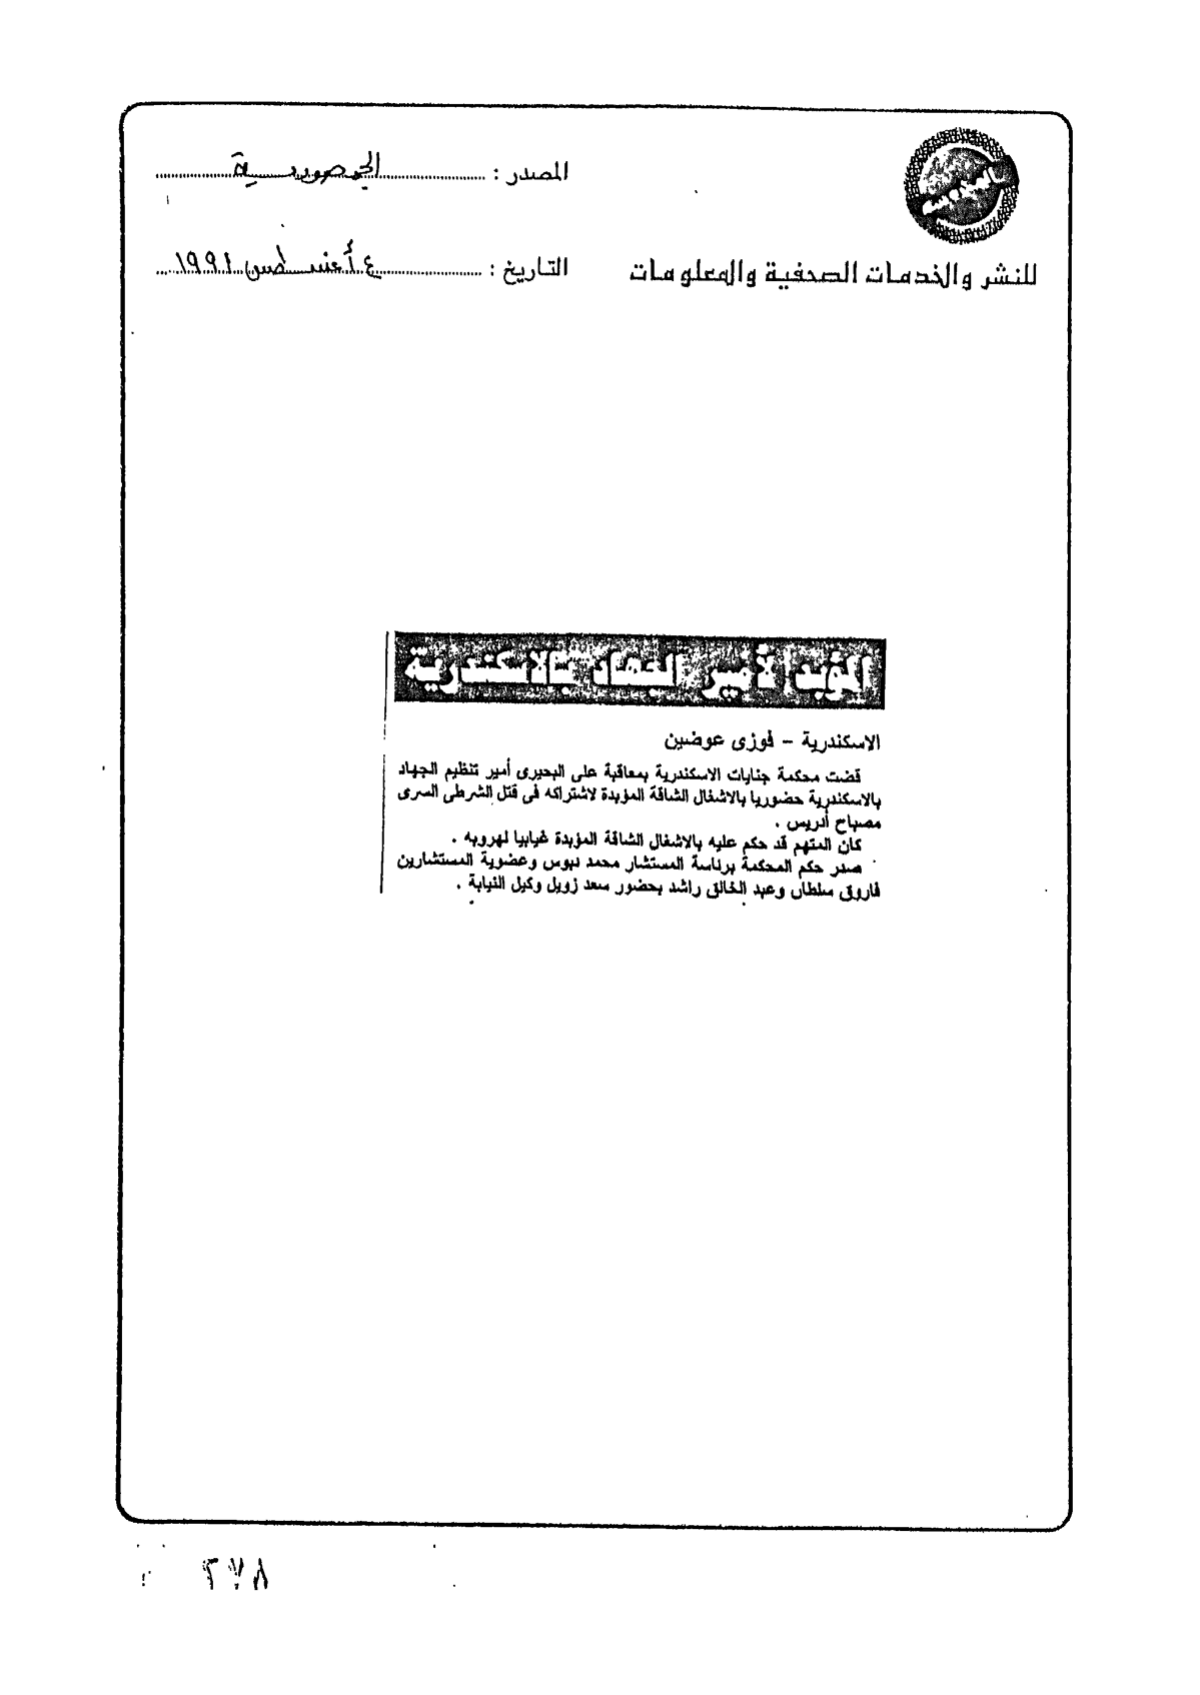 المصدر : الجمهورية
للنشر والخدمات الصحفية والمعلومات
التاريخ : ٤ أغسطس ١٩٩١
المؤبد لأمير الجهاد بالاسكندرية
الاسكندرية - فوزى عوضين
قضت محكمة جنايات الاسكندرية بمعاقبة على البحيرى أمير تنظيم الجهاد
بالاسكندرية حضوريا بالاشغال الشاقة المؤبدة لاشتراكه فى قتل الشرطى السرى
مصباح أدريس .
كان المتهم قد حكم عليه بالاشغال الشاقة المؤبدة غيابيا لهروبه .
صدر حكم المحكمة برئاسة المستشار محمد دبوس وعضوية المستشارين
فاروق سلطان وعبد الخالق راشد بحضور سعد زويل وكيل النيابة .
٢٧٨